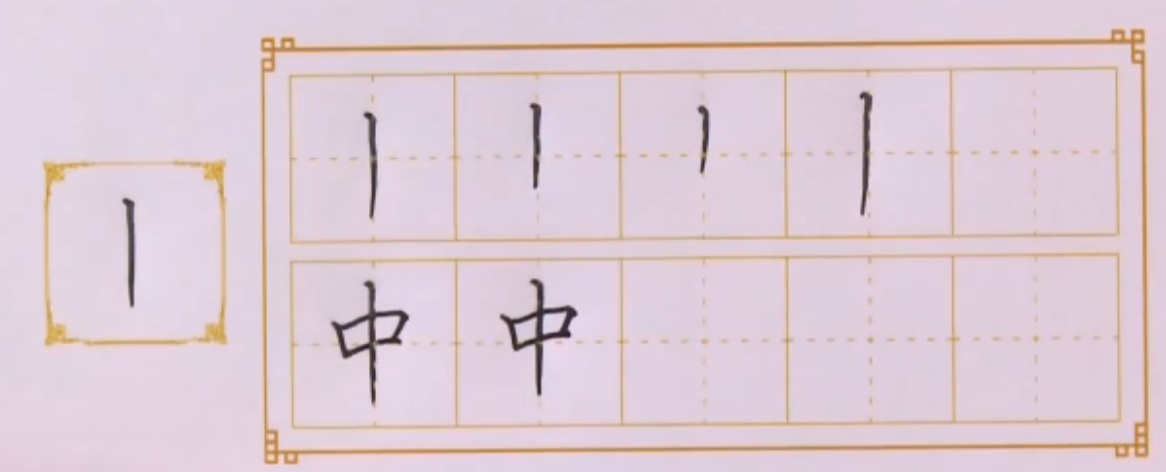 丨
丨 丨 丨 丨
中 中